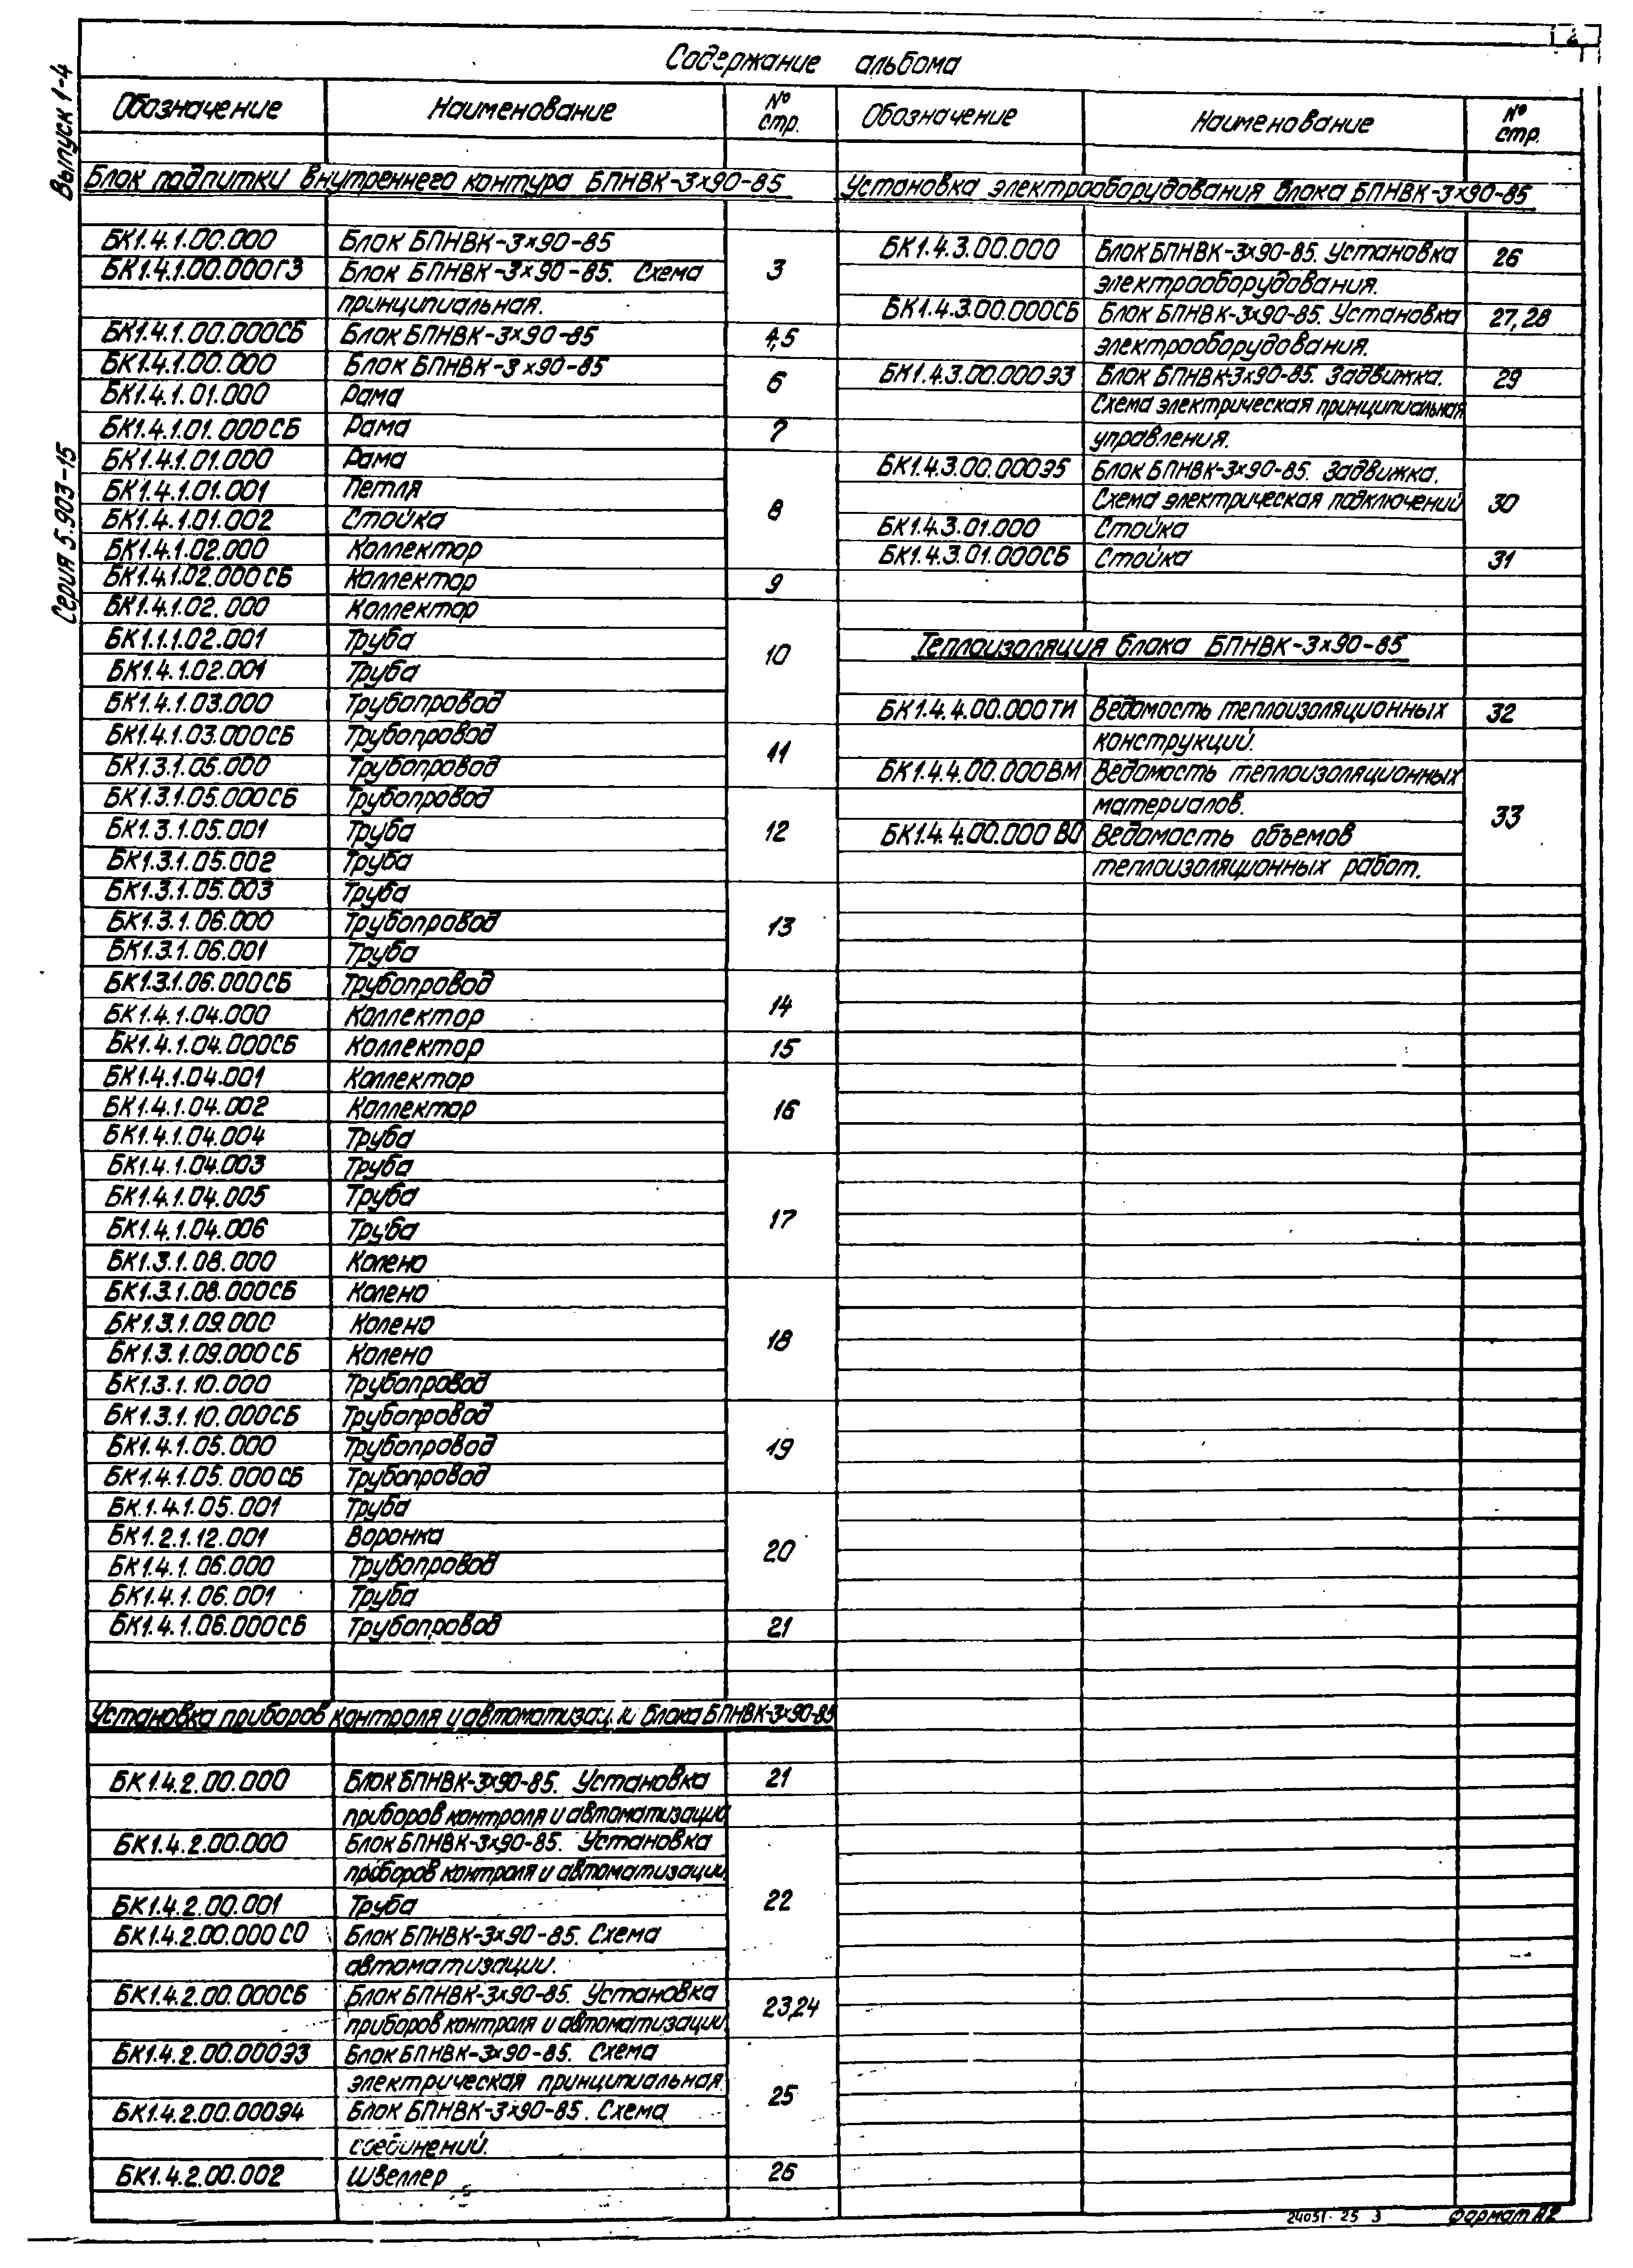 2
Содержание альбома
Выпуск 1-4
Серия 5.903-15
Обозначение Наименование № стр.
Блок подпитки внутреннего контура БПНВК-3×90-85
БК1.4.1.00.000 Блок БПНВК-3×90-85
БК1.4.1.00.000ГЗ Блок БПНВК-3×90-85. Схема 3
принципиальная.
БК1.4.1.00.000СБ Блок БПНВК-3×90-85 4,5
БК1.4.1.00.000 Блок БПНВК-3×90-85
БК1.4.1.01.000 Рама 6
БК1.4.1.01.000СБ Рама 7
БК1.4.1.01.000 Рама
БК1.4.1.01.001 Петля
БК1.4.1.01.002 Стойка 8
БК1.4.1.02.000 Коллектор
БК1.4.1.02.000СБ Коллектор 9
БК1.4.1.02.000 Коллектор
БК1.1.1.02.001 Труба
БК1.4.1.02.001 Труба 10
БК1.4.1.03.000 Трубопровод
БК1.4.1.03.000СБ Трубопровод
БК1.3.1.05.000 Трубопровод 11
БК1.3.1.05.000СБ Трубопровод
БК1.3.1.05.001 Труба 12
БК1.3.1.05.002 Труба
БК1.3.1.05.003 Труба
БК1.3.1.06.000 Трубопровод 13
БК1.3.1.06.001 Труба
БК1.3.1.06.000СБ Трубопровод
БК1.4.1.04.000 Коллектор 14
БК1.4.1.04.000СБ Коллектор 15
БК1.4.1.04.001 Коллектор
БК1.4.1.04.002 Коллектор 16
БК1.4.1.04.004 Труба
БК1.4.1.04.003 Труба
БК1.4.1.04.005 Труба
БК1.4.1.04.006 Труба 17
БК1.3.1.08.000 Колено
БК1.3.1.08.000СБ Колено
БК1.3.1.09.000 Колено
БК1.3.1.09.000СБ Колено 18
БК1.3.1.10.000 Трубопровод
БК1.3.1.10.000СБ Трубопровод
БК1.4.1.05.000 Трубопровод 19
БК1.4.1.05.000СБ Трубопровод
БК.1.4.1.05.001 Труба
БК1.2.1.12.001 Воронка
БК1.4.1.06.000 Трубопровод 20
БК1.4.1.06.001 Труба
БК1.4.1.06.000СБ Трубопровод 21
Установка приборов контроля и автоматизации блока БПНВК-3×90-85
БК1.4.2.00.000 Блок БПНВК-3×90-85. Установка 21
приборов контроля и автоматизации
БК1.4.2.00.000 Блок БПНВК-3×90-85. Установка
приборов контроля и автоматизации.
БК1.4.2.00.001 Труба 22
БК1.4.2.00.000СО Блок БПНВК-3×90-85. Схема
автоматизации.
БК1.4.2.00.000СБ Блок БПНВК-3×90-85. Установка 23,24
приборов контроля и автоматизации
БК1.4.2.00.000Э3 Блок БПНВК-3×90-85. Схема
электрическая принципиальная 25
БК1.4.2.00.000Э4 Блок БПНВК-3×90-85. Схема
соединений.
БК1.4.2.00.002 Швеллер 26
Обозначение Наименование № стр.
Установка электрооборудования блока БПНВК-3×90-85
БК1.4.3.00.000 Блок БПНВК-3×90-85. Установка 26
электрооборудования.
БК1.4.3.00.000СБ Блок БПНВК-3×90-85. Установка 27,28
электрооборудования.
БК1.4.3.00.000Э3 Блок БПНВК-3×90-85. Задвижка. 29
Схема электрическая принципиальная
управления.
БК1.4.3.00.000Э5 Блок БПНВК-3×90-85. Задвижка.
Схема электрическая подключений 30
БК1.4.3.01.000 Стойка
БК1.4.3.01.000СБ Стойка 31
Теплоизоляция блока БПНВК-3×90-85
БК1.4.4.00.000ТИ Ведомость теплоизоляционных 32
конструкций.
БК1.4.4.00.000ВМ Ведомость теплоизоляционных
материалов. 33
БК1.4.4.00.000ВО Ведомость объемов
теплоизоляционных работ.
24051-25 3 Формат А2